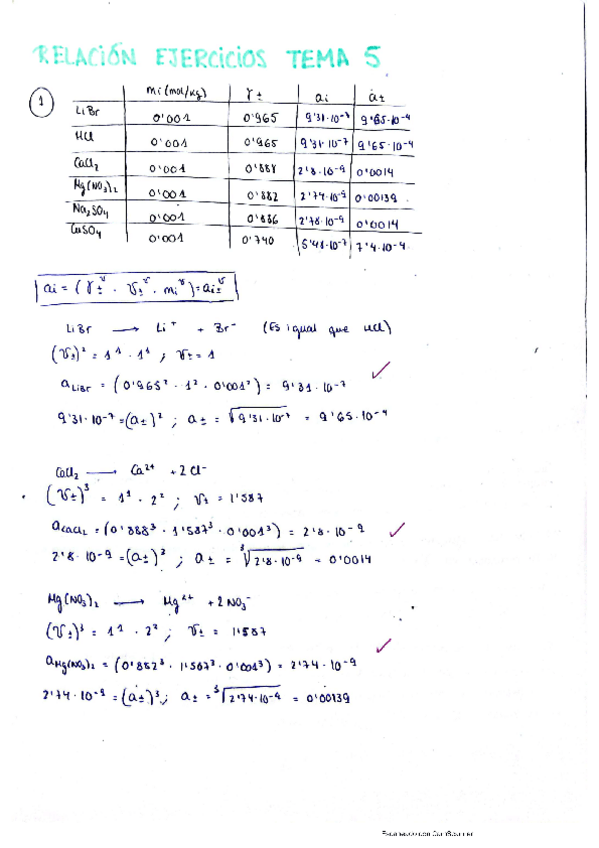 RELACIÓN EJERCICIOS TEMA 5
1
mi (mol/kg) γ± ai a±
LiBr 0'001 0'965 9'31·10⁻⁷ 9'65·10⁻⁴
HCl 0'001 0'965 9'31·10⁻⁷ 9'65·10⁻⁴
CaCl₂ 0'001 0'888 2'8·10⁻⁹ 0'0014
Mg(NO₃)₂ 0'001 0'882 2'74·10⁻⁹ 0'00139
Na₂SO₄ 0'001 0'886 2'78·10⁻⁹ 0'0014
CuSO₄ 0'001 0'740 5'48·10⁻⁷ 7'4·10⁻⁴
ai = (γ±^ν · ν±^ν · mi^ν) = ai±^ν
LiBr ⟶ Li⁺ + Br⁻ (Es igual que HCl)
(ν±)² = 1¹ · 1¹ ; ν± = 1
a_LiBr = (0'965² · 1² · 0'001²) = 9'31·10⁻⁷
9'31·10⁻⁷ = (a±)² ; a± = √9'31·10⁻⁷ = 9'65·10⁻⁴
CaCl₂ ⟶ Ca²⁺ + 2Cl⁻
(ν±)³ = 1¹ · 2² ; ν± = 1'587
a_CaCl₂ = (0'888³ · 1'587³ · 0'001³) = 2'8·10⁻⁹
2'8·10⁻⁹ = (a±)³ ; a± = ³√2'8·10⁻⁹ = 0'0014
Mg(NO₃)₂ ⟶ Mg²⁺ + 2NO₃⁻
(ν±)³ = 1¹ · 2² ; ν± = 1'587
a_Mg(NO₃)₂ = (0'882³ · 1'587³ · 0'001³) = 2'74·10⁻⁹
2'74·10⁻⁹ = (a±)³ ; a± = ³√2'74·10⁻⁹ = 0'00139